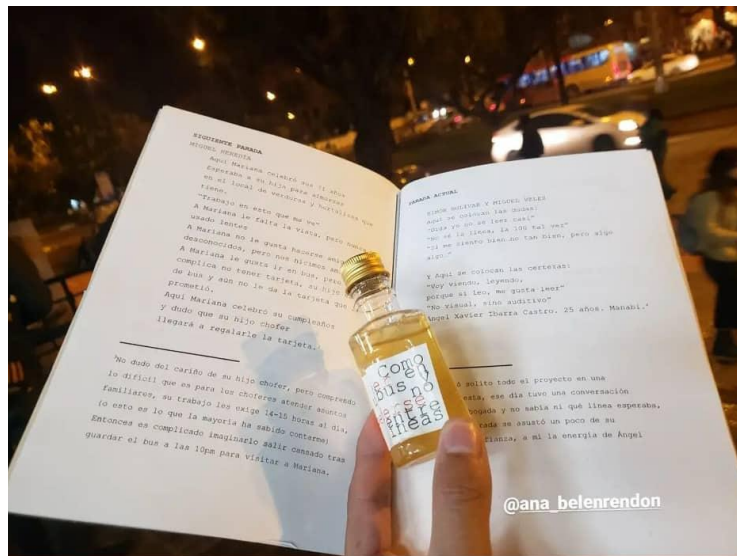 SIGUIENTE PARADA
MIGUEL HEREDIA
Aquí Mariana celebró sus 71 años
Esperaba a su hija para almorzar
en el local de verduras y hortalizas que
tiene.
"Trabajo en esto que me ve"
A Mariana le falta la vista, pero
usado lentes
A Mariana no le gusta hacerse
desconocidos, pero nos hicimos
A Mariana le gusta ir en bus, pero
complica no tener tarjeta, su hijo
de bus y aún no le da la tarjeta que
prometió.
Aquí Mariana celebró su cumpleaños
y dudo que su hijo chofer
llegará a regalarle la tarjeta.
No dudo del cariño de su hijo chofer, pero comprendo
lo difícil que es para los choferes atender asuntos
familiares, su trabajo les exige 14-15 horas al día,
(o esto es lo que la mayoría ha sabido contarme)
Entonces es complicado imaginarlo salir cansado tras
guardar el bus a las 10pm para visitar a Mariana.
PARADA ACTUAL
SIMÓN BOLÍVAR Y MIGUEL VÉLEZ
Aquí se colocan las dudas:
"Qué ya no se lee casi"
"No es la línea, la 100 tal vez"
"Si me siento bien no tan bien, pero algo
algo."
Y Aquí se colocan las certezas:
"Voy viendo, leyendo,
porque sí leo, me gusta leer"
"No visual, sino auditivo"
Ángel Xavier Ibarra Castro. 25 años. Manabí.
solito todo el proyecto en una
esta, ese día tuvo una conversación
abogada y no sabía ni qué línea esperaba,
nada se asustó un poco de su
fianza, a mí la energía de Ángel
Como
en el
bus no
se lee
entre
líneas
@ana_belenrendon